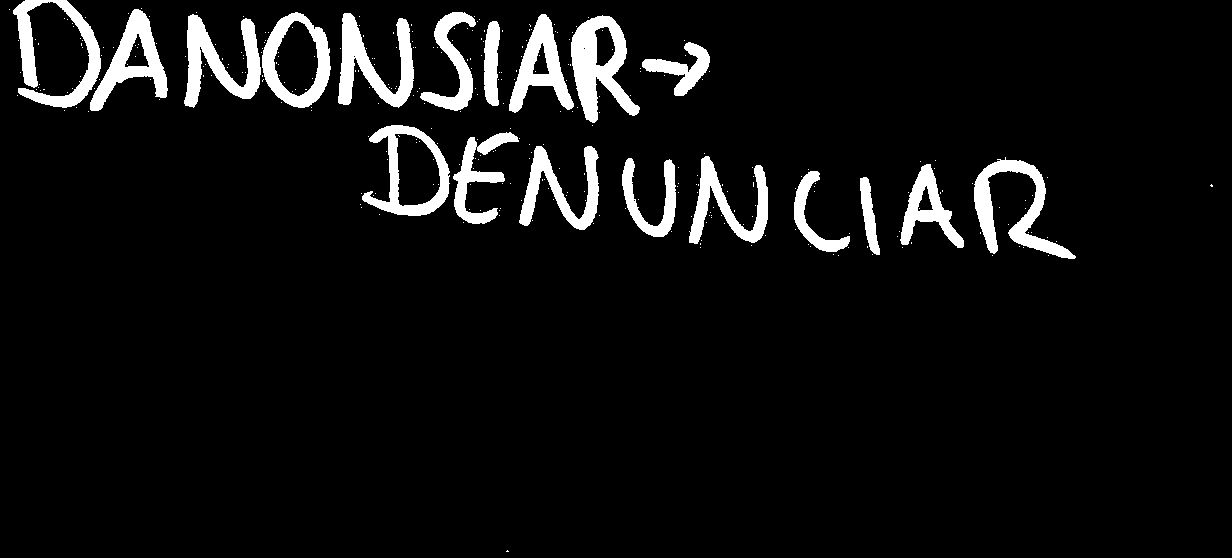 DANONSIAR →
DENUNCIAR